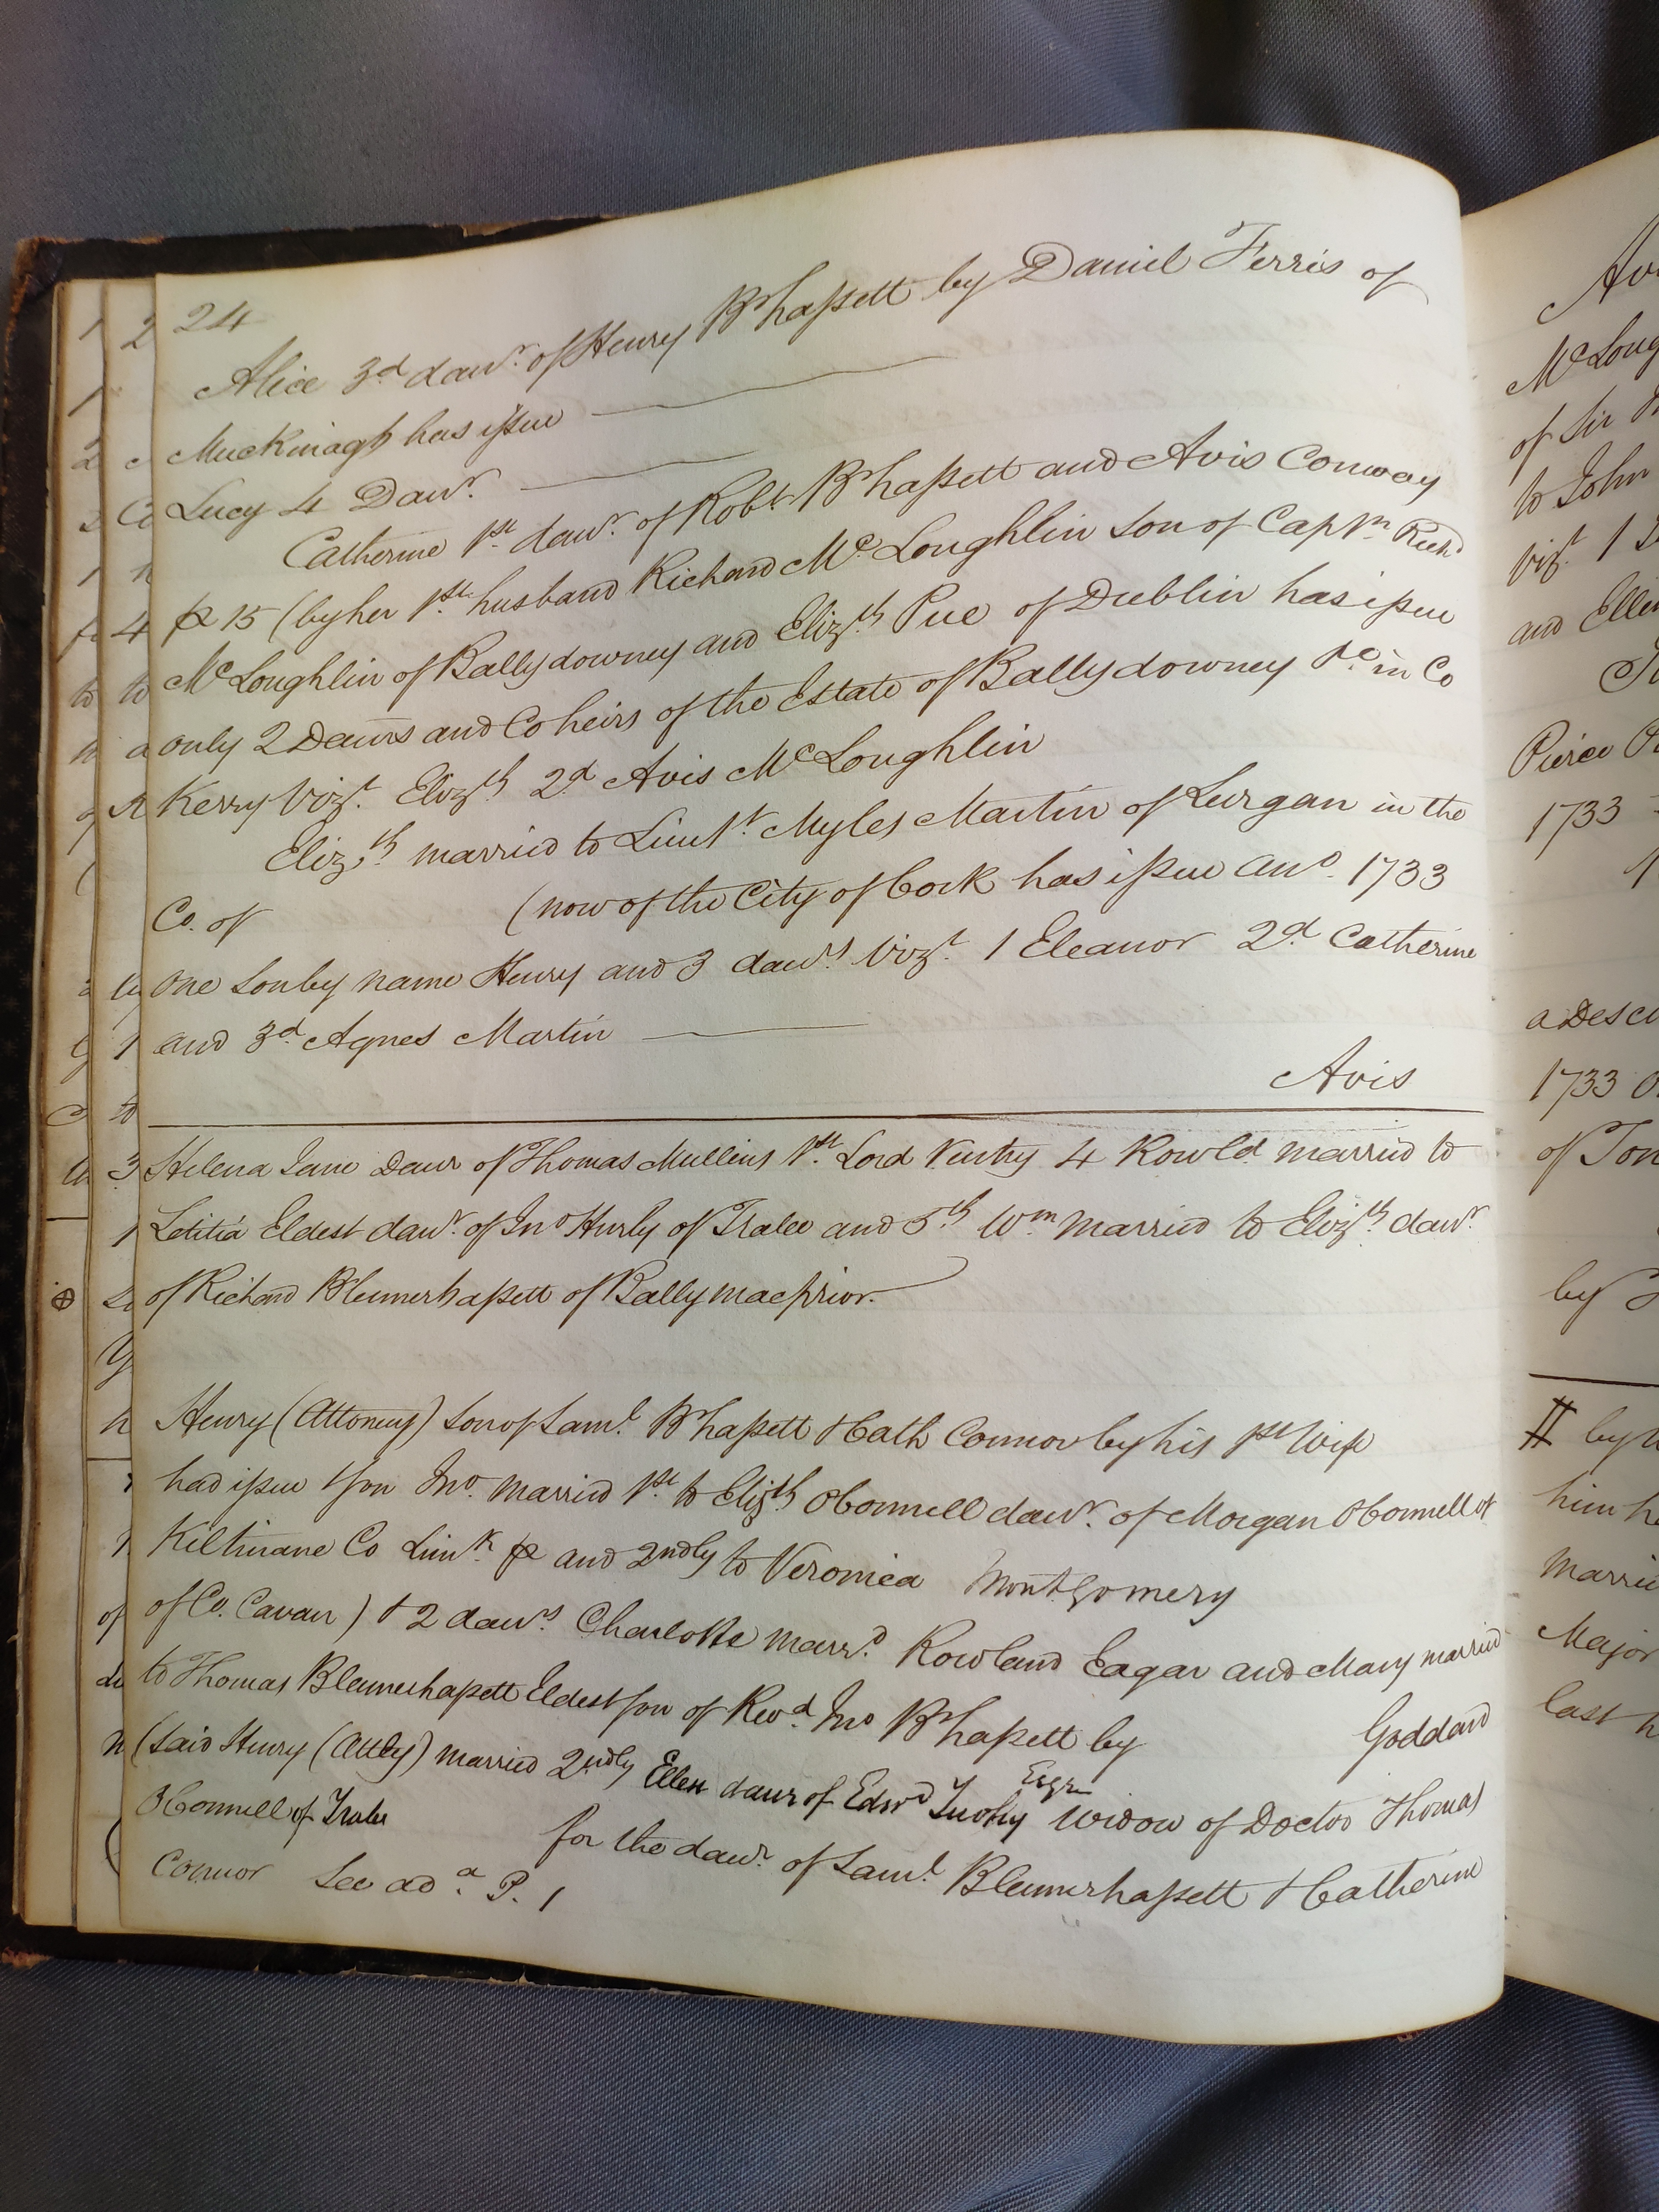 24
Alice 3d dawr. of Henry Bhassett by Daniel Ferris of
Muckinagh has issue
Lucy 4 Dawr.
Catherine 1st. dawr. of Robt Bhassett and Avis Conway
p 15 (by her 1st. husband Richard McLoughlin son of Captn Richd
McLoughlin of Ballydowney and Elizth Pue of Dublin has issue
only 2 Dawrs and Coheirs of the Estate of Ballydowney &c in Co
Kerry Vizt. Elizth 2d Avis McLoughlin
Elizth married to Lieut. Myles Martin of Lurgan in the
Co. of (now of the City of Cork has issue ano. 1733
one Son by name Henry and 3 dawrs Vizt. 1 Eleanor 2d. Catherine
and 3d. Agnes Martin
Avis
Helena Jane Dawr of Thomas Mullins 1st. Lord Ventry 4 Rowld. married to
Letitia Eldest dawr. of Jno Hurly of Tralee and 5th Wm married to Elizth dawr.
of Richard Blennerhassett of Ballymacprior.
Henry (Attorney) Son of Saml. Bhassett & Cath Connor by his 1st Wife
had issue 1 Son Jno. married 1st. to Elizth OConnell dawr. of Morgan OConnell of
Kiltinane Co Limk. p and 2ndly to Veronica Montgomery
of Co. Cavan) & 2 dawrs Charlotte marrd. Rowland Eagar and Mary married
to Thomas Blennerhassett Eldest Son of Revd. Jno Bhassett by Goddard
(said Henry (Atty) married 2ndly Ellen daur of Edwd Tuohy Esqre Widow of Doctor Thomas
OConnell of Tralee for the dawr. of Saml. Blennerhassett & Catherine
Connor See ada. P. 1
Mc Loug
of Sir
to John
Vizt. 1
and Ellen
Pierce
1733
a Desce
1733
of
by
by
him
Married
Major
last